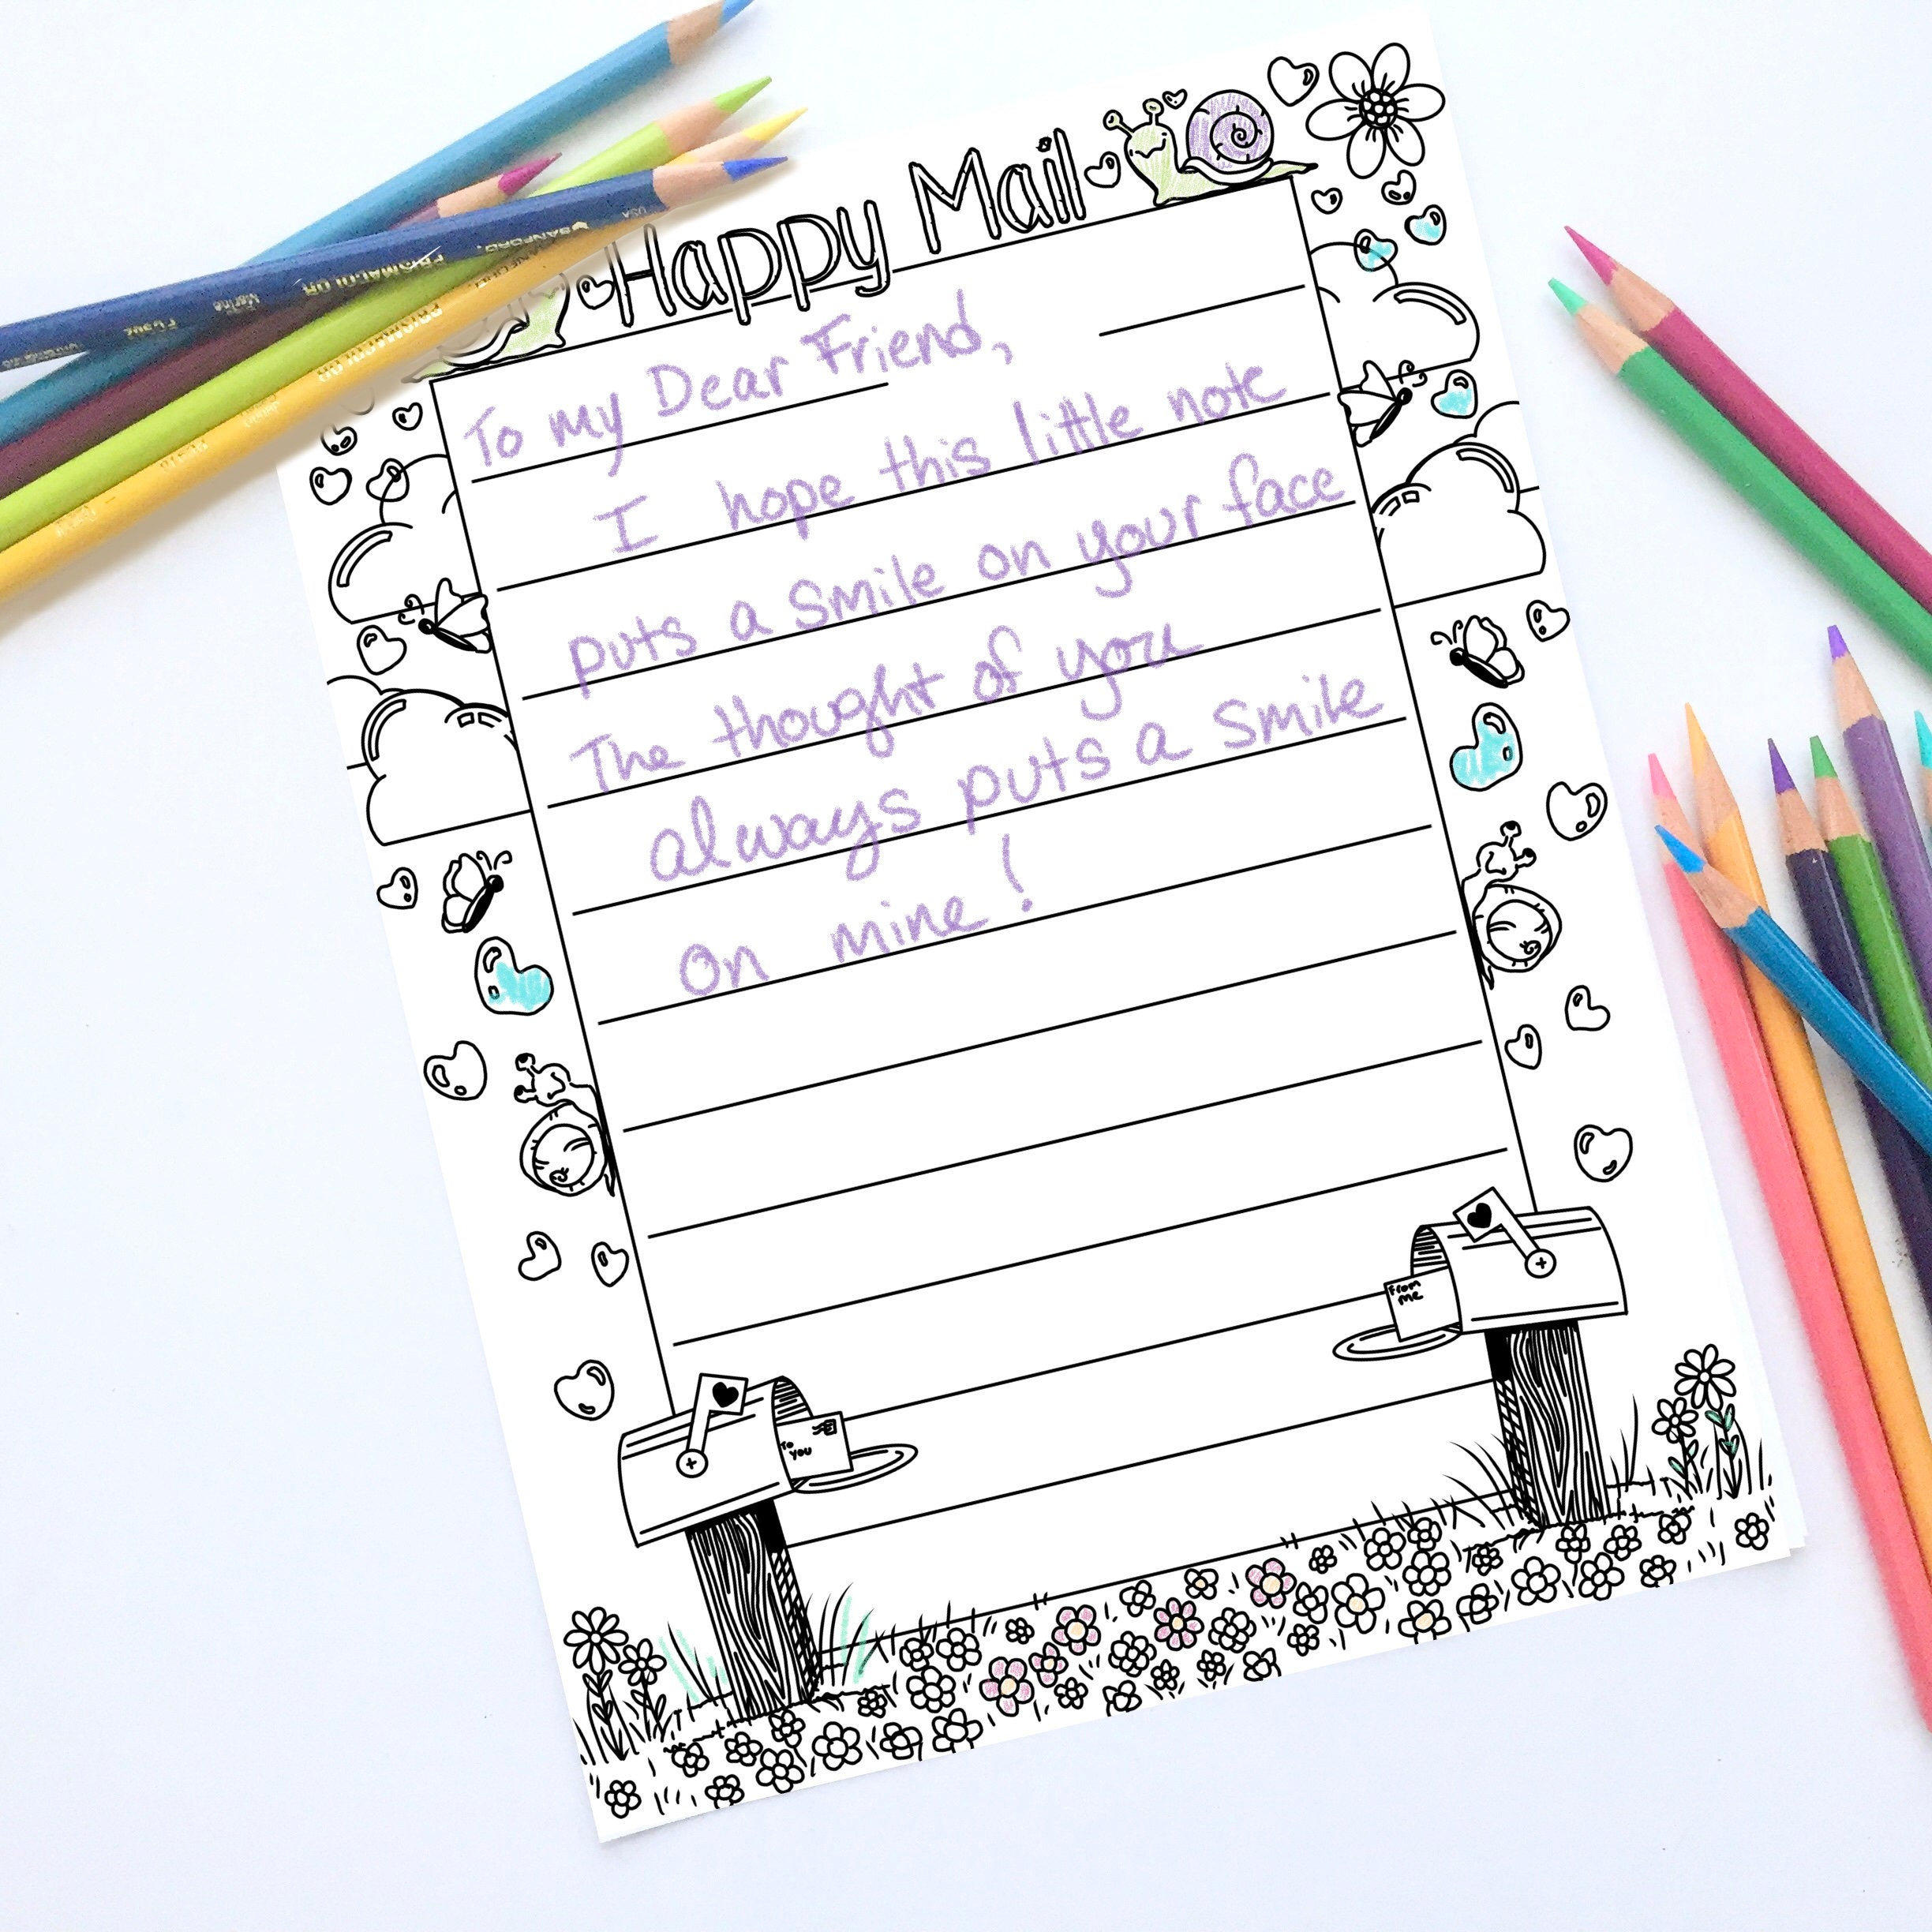 Happy Mail
To my Dear Friend,
I hope this little note
puts a smile on your face
The thought of you
always puts a smile
on mine!
From
me
To
you
PRISMACOLOR
SANFORD.
USA
Marine
PRISMACOLOR